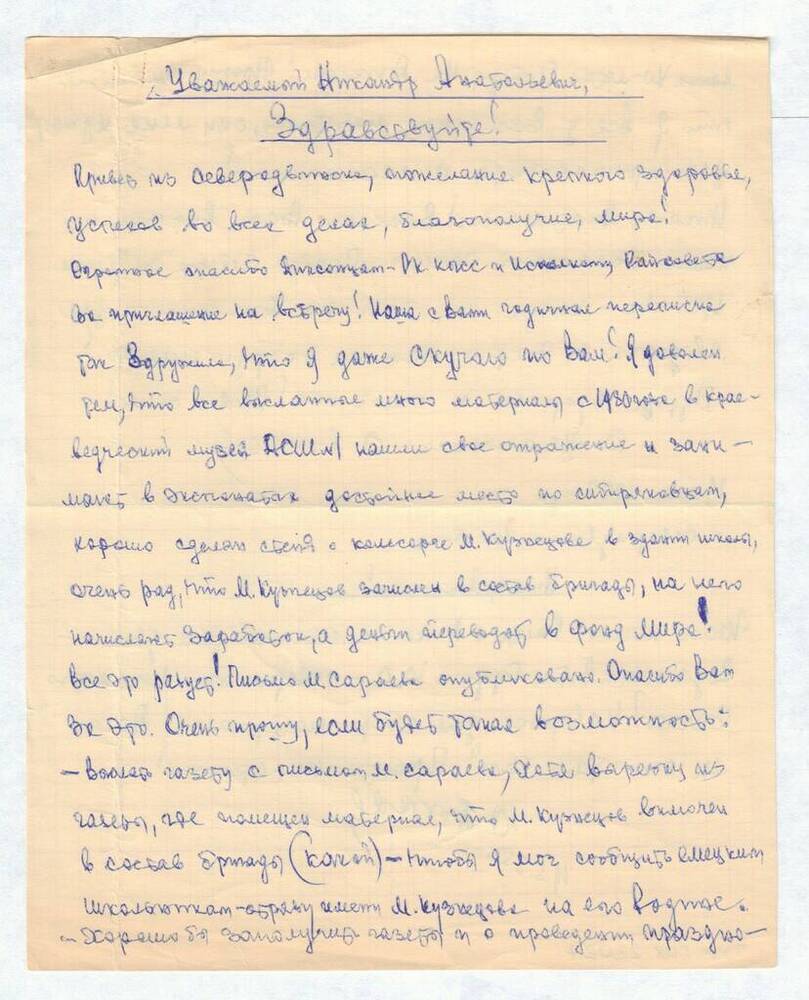 Уважаемый Никандр Анатольевич,
Здравствуйте!
Привет из Северодвинска, пожелание крепкого здоровья,
успехов во всех делах, благополучие, мира!
Огромное спасибо Диксонцам – РК КПСС и Исполкому Райсовета
за приглашение на встречу! Наша с Вами годичная переписка
так здружила, что я даже скучаю по Вам! Я доволен
тем, что все высланные мною материалы с 1980 года в крае-
ведческий музей ДСШ №1 нашли свое отражение и зани-
мают в экспонатах достойное место по сибиряковцам,
хорошо сделан стенд о комсорге М. Кузнецове в здании школы,
очень рад, что М. Кузнецов зачислен в состав бригады, на него
начисляют заработок, а деньги переводят в фонд Мира!
Все это радует! Письмо М. Сараева опубликовано. Спасибо Вам
за это. Очень прошу, если будет такая возможность:
– Выслать газету с письмом М. Сараева, хотя вырезку из
газеты, где помещен материал, что М. Кузнецов включен
в состав бригады (какой) – чтобы я мог сообщить емецким
школьникам – отряду имени М. Кузнецова на его родине.
– Хорошо бы заполучить газеты и о проведении праздно-